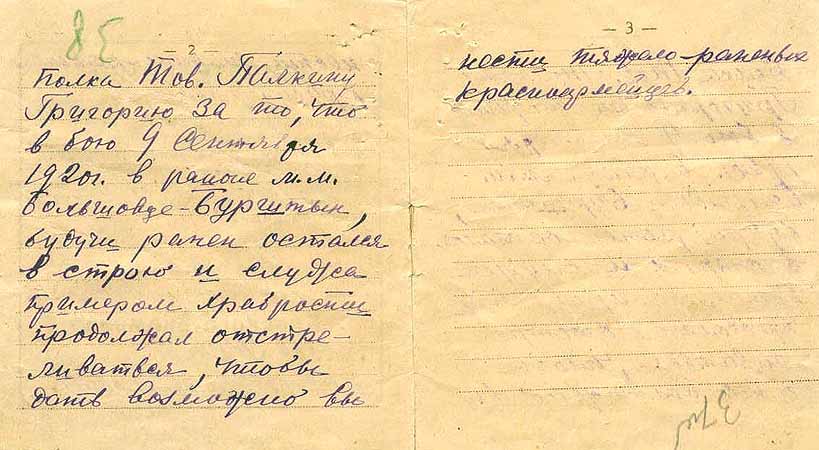 38
— 2 —
полка Тов. Палкину
Григорию За то, что
в бою 9 Сентября
1920г. в районе м.м.
Большовце-Бурштын,
будучи ранен остался
в строю и служа
примером храбрости
продолжал отстре-
ливаться, чтобы
дать возможно вы
— 3 —
нести тяжело-раненых
красноармейцев.